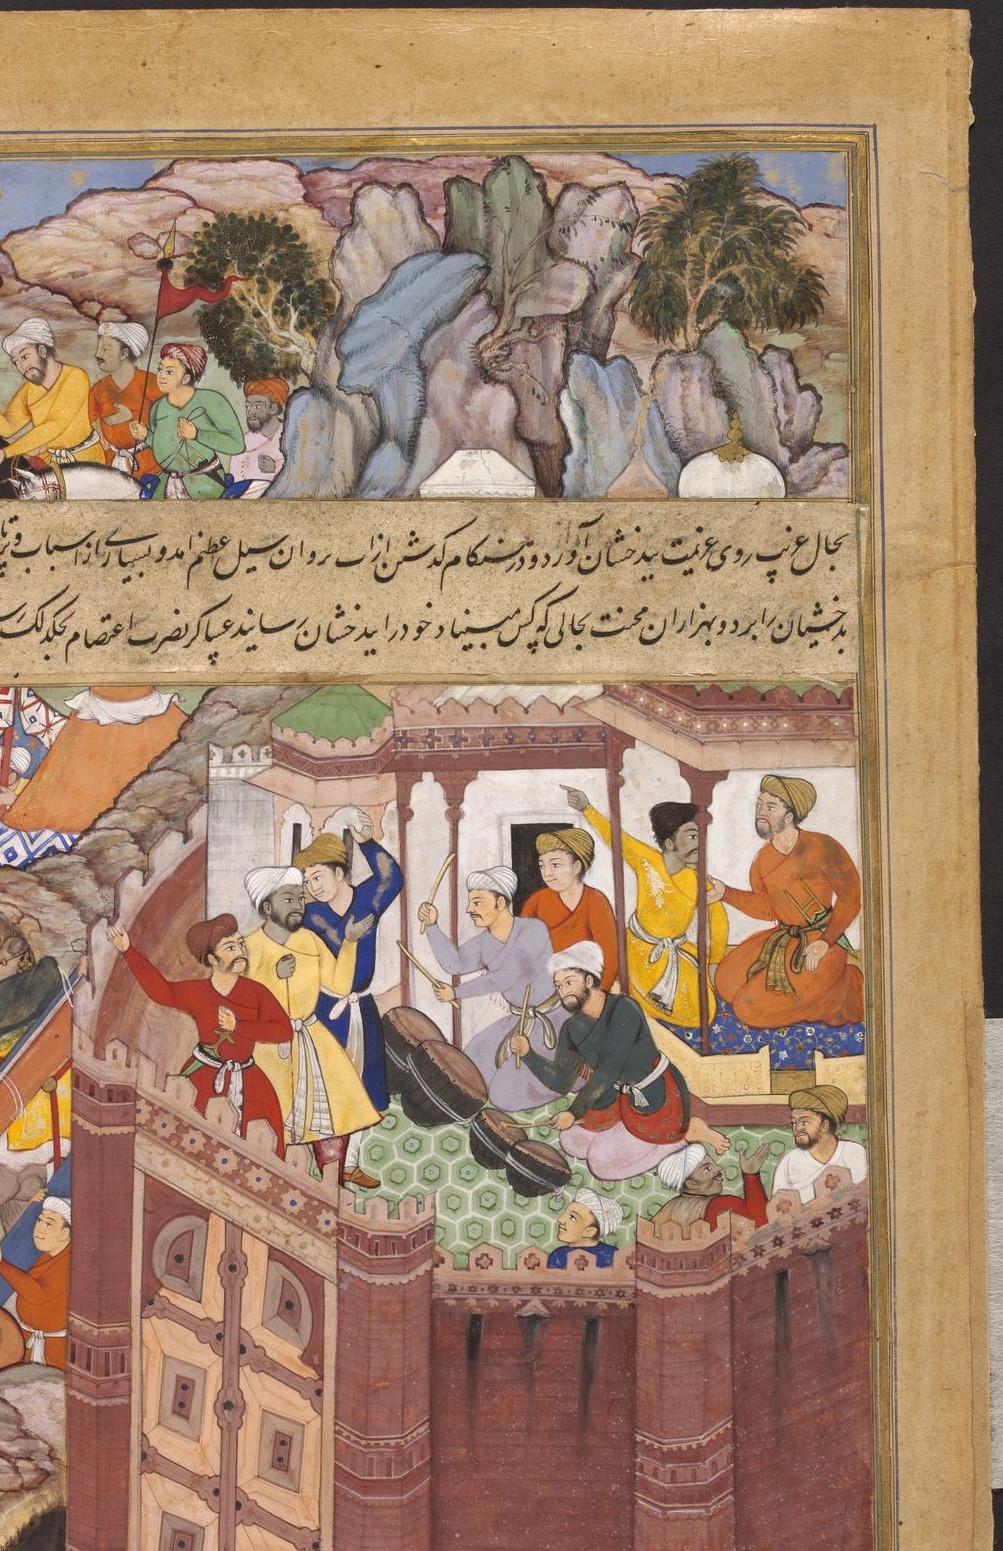 بحال غریب روی عزیمت ببدخشان آورد و در هنکام کدشتن ازاب بروان سیل عظیم امد و بسیاری را از اسباب و
بدخشیان را برد و بهزاران محنت بحالی که کس مبیناد خود را ببدخشان رسانید عساکر نصرت اعتصام